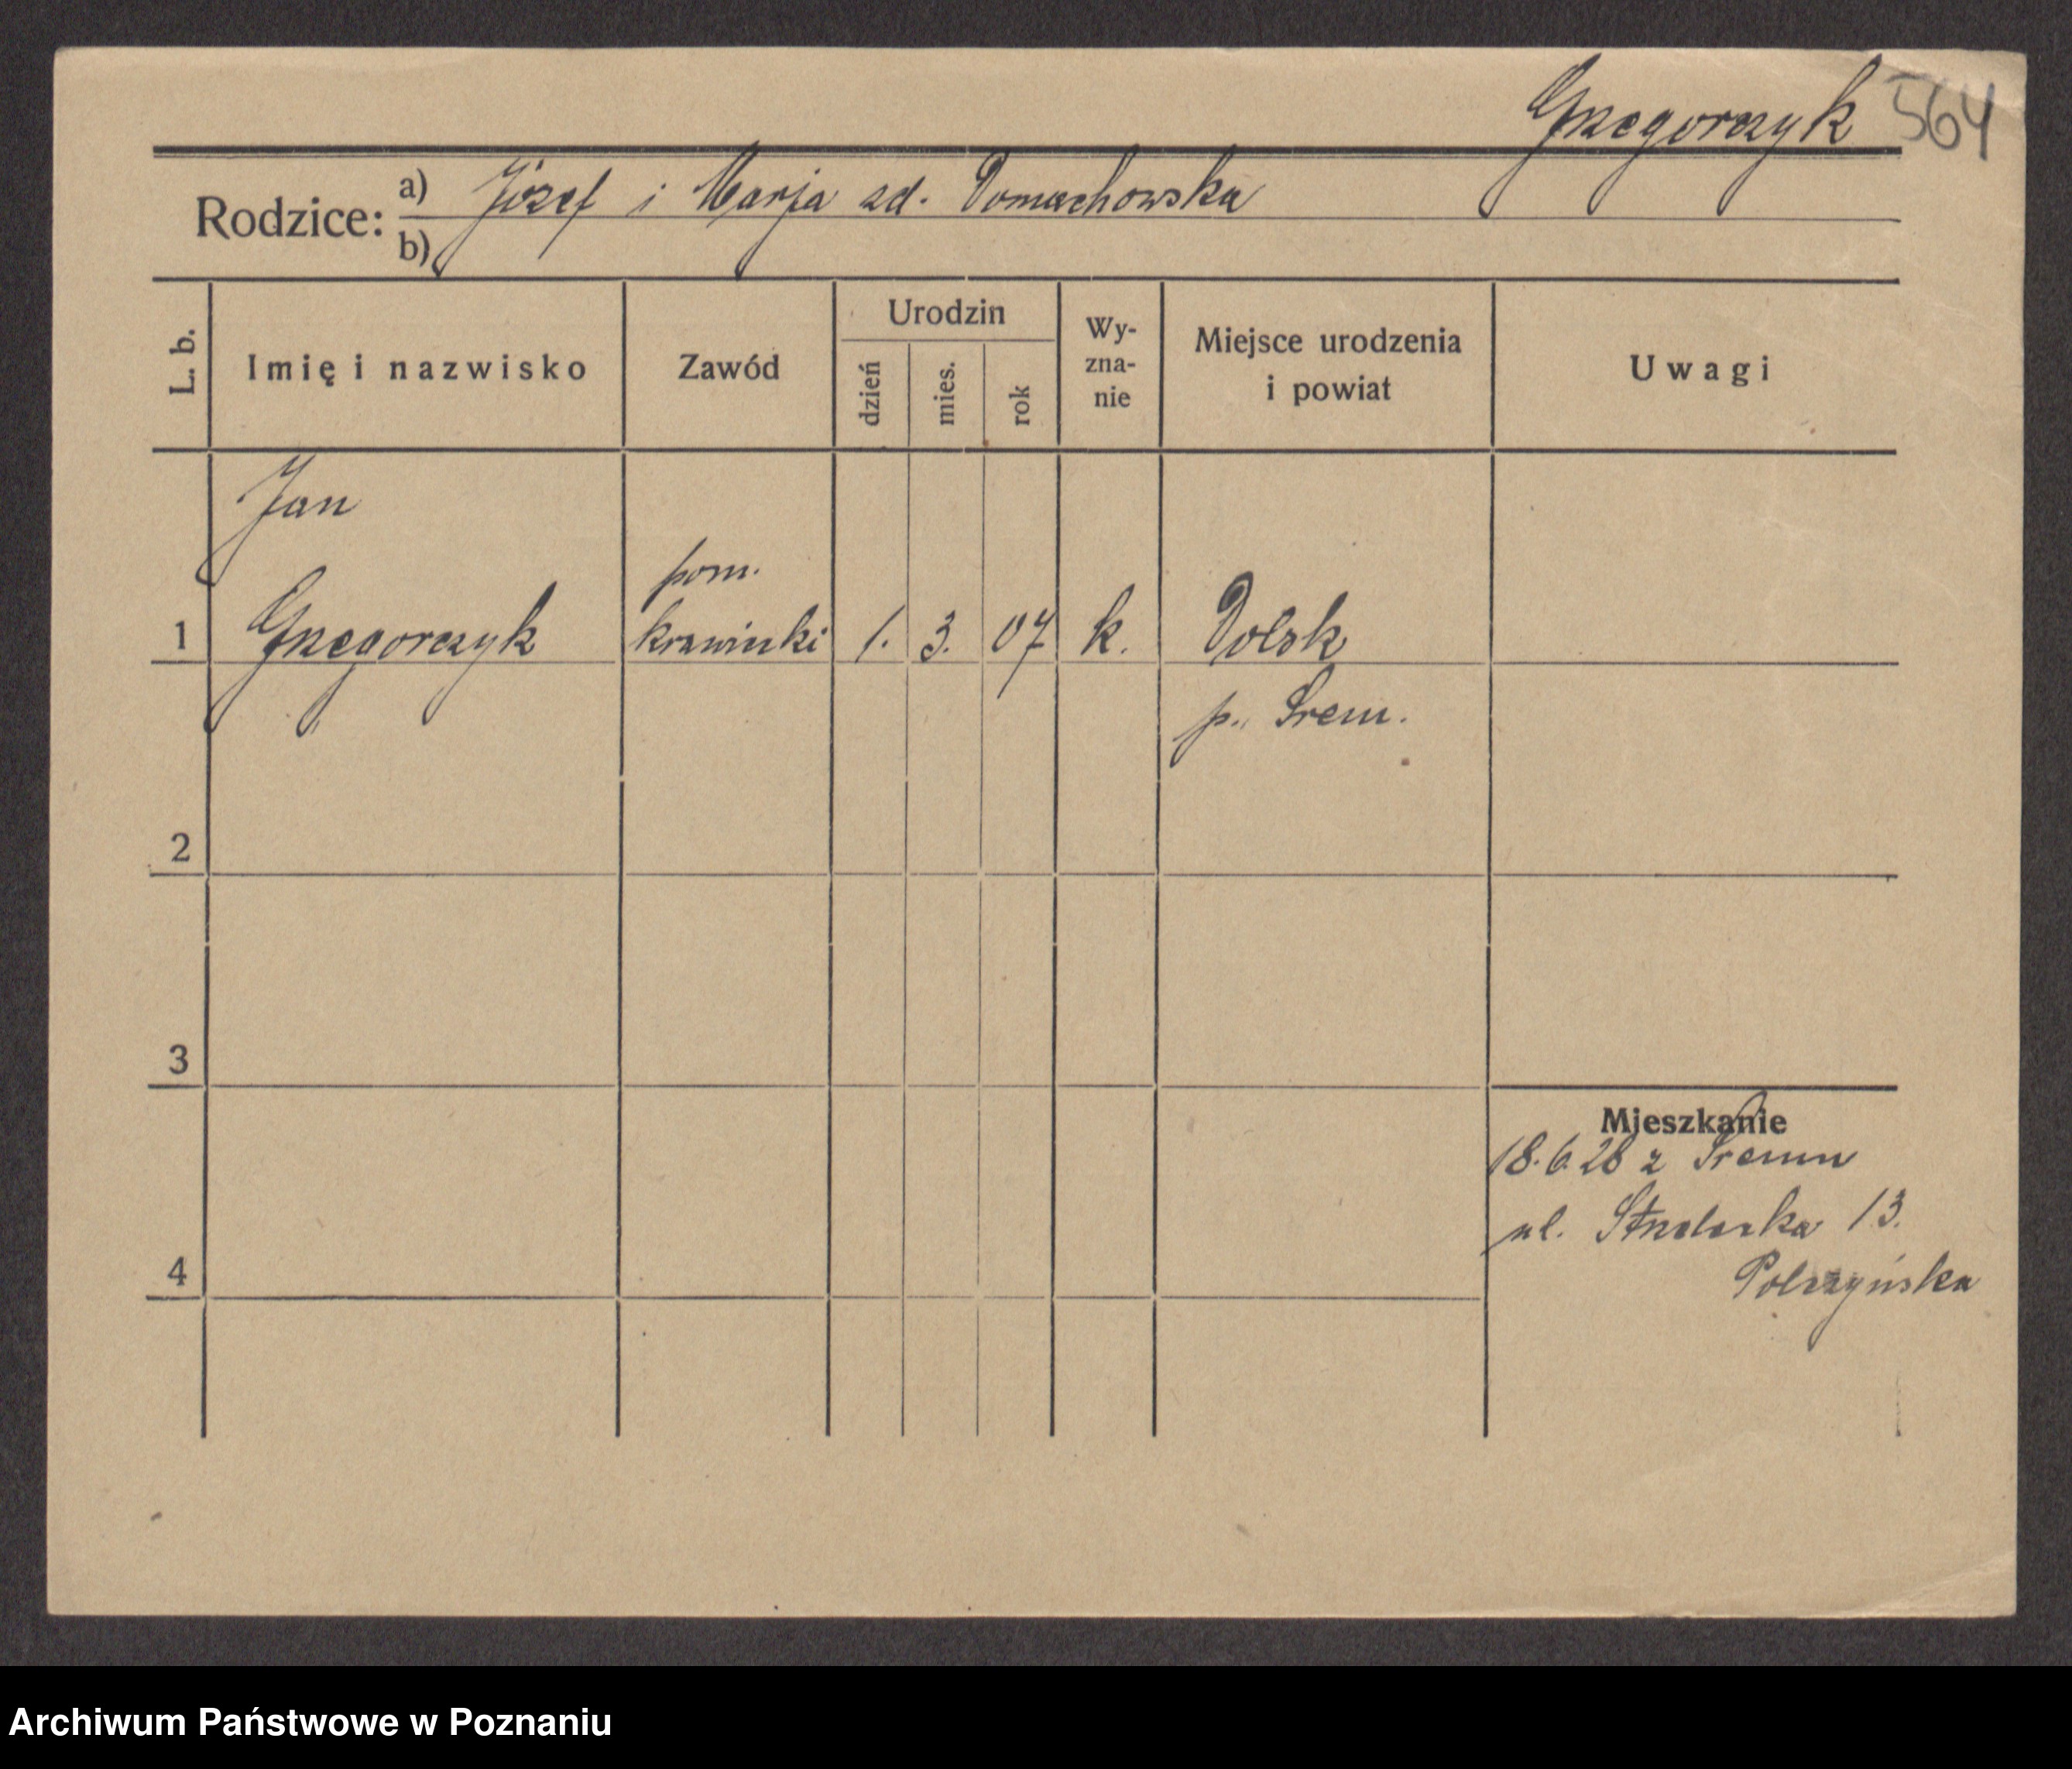 Grzegorczyk 564
Rodzice: a) Józef i Marja zd. Domachowska
b)
L. b. Imię i nazwisko Zawód Urodzin dzień mies. rok Wy-zna-nie Miejsce urodzenia i powiat Uwagi
Jan
pom.
1 Grzegorczyk krawiecki 1. 3. 07 k. Dolsk
p. Śrem.
2
3
Mieszkanie
18.6.28 z Śremu
ul. Strzelecka 13.
4
Archiwum Państwowe w Poznaniu